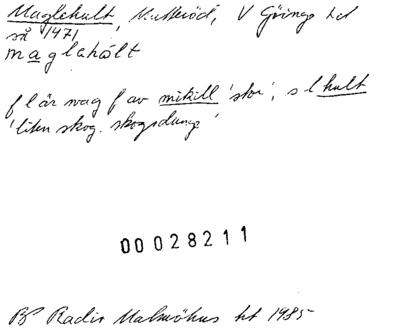 Maglehult, Vittseröd, V Göinge hd
så 1471
maglahált
f l är svag f av mikill 'stor', s l hult
'liten skog, skogsdunge'
00028211
BP Radio Malmöhus ht 1985